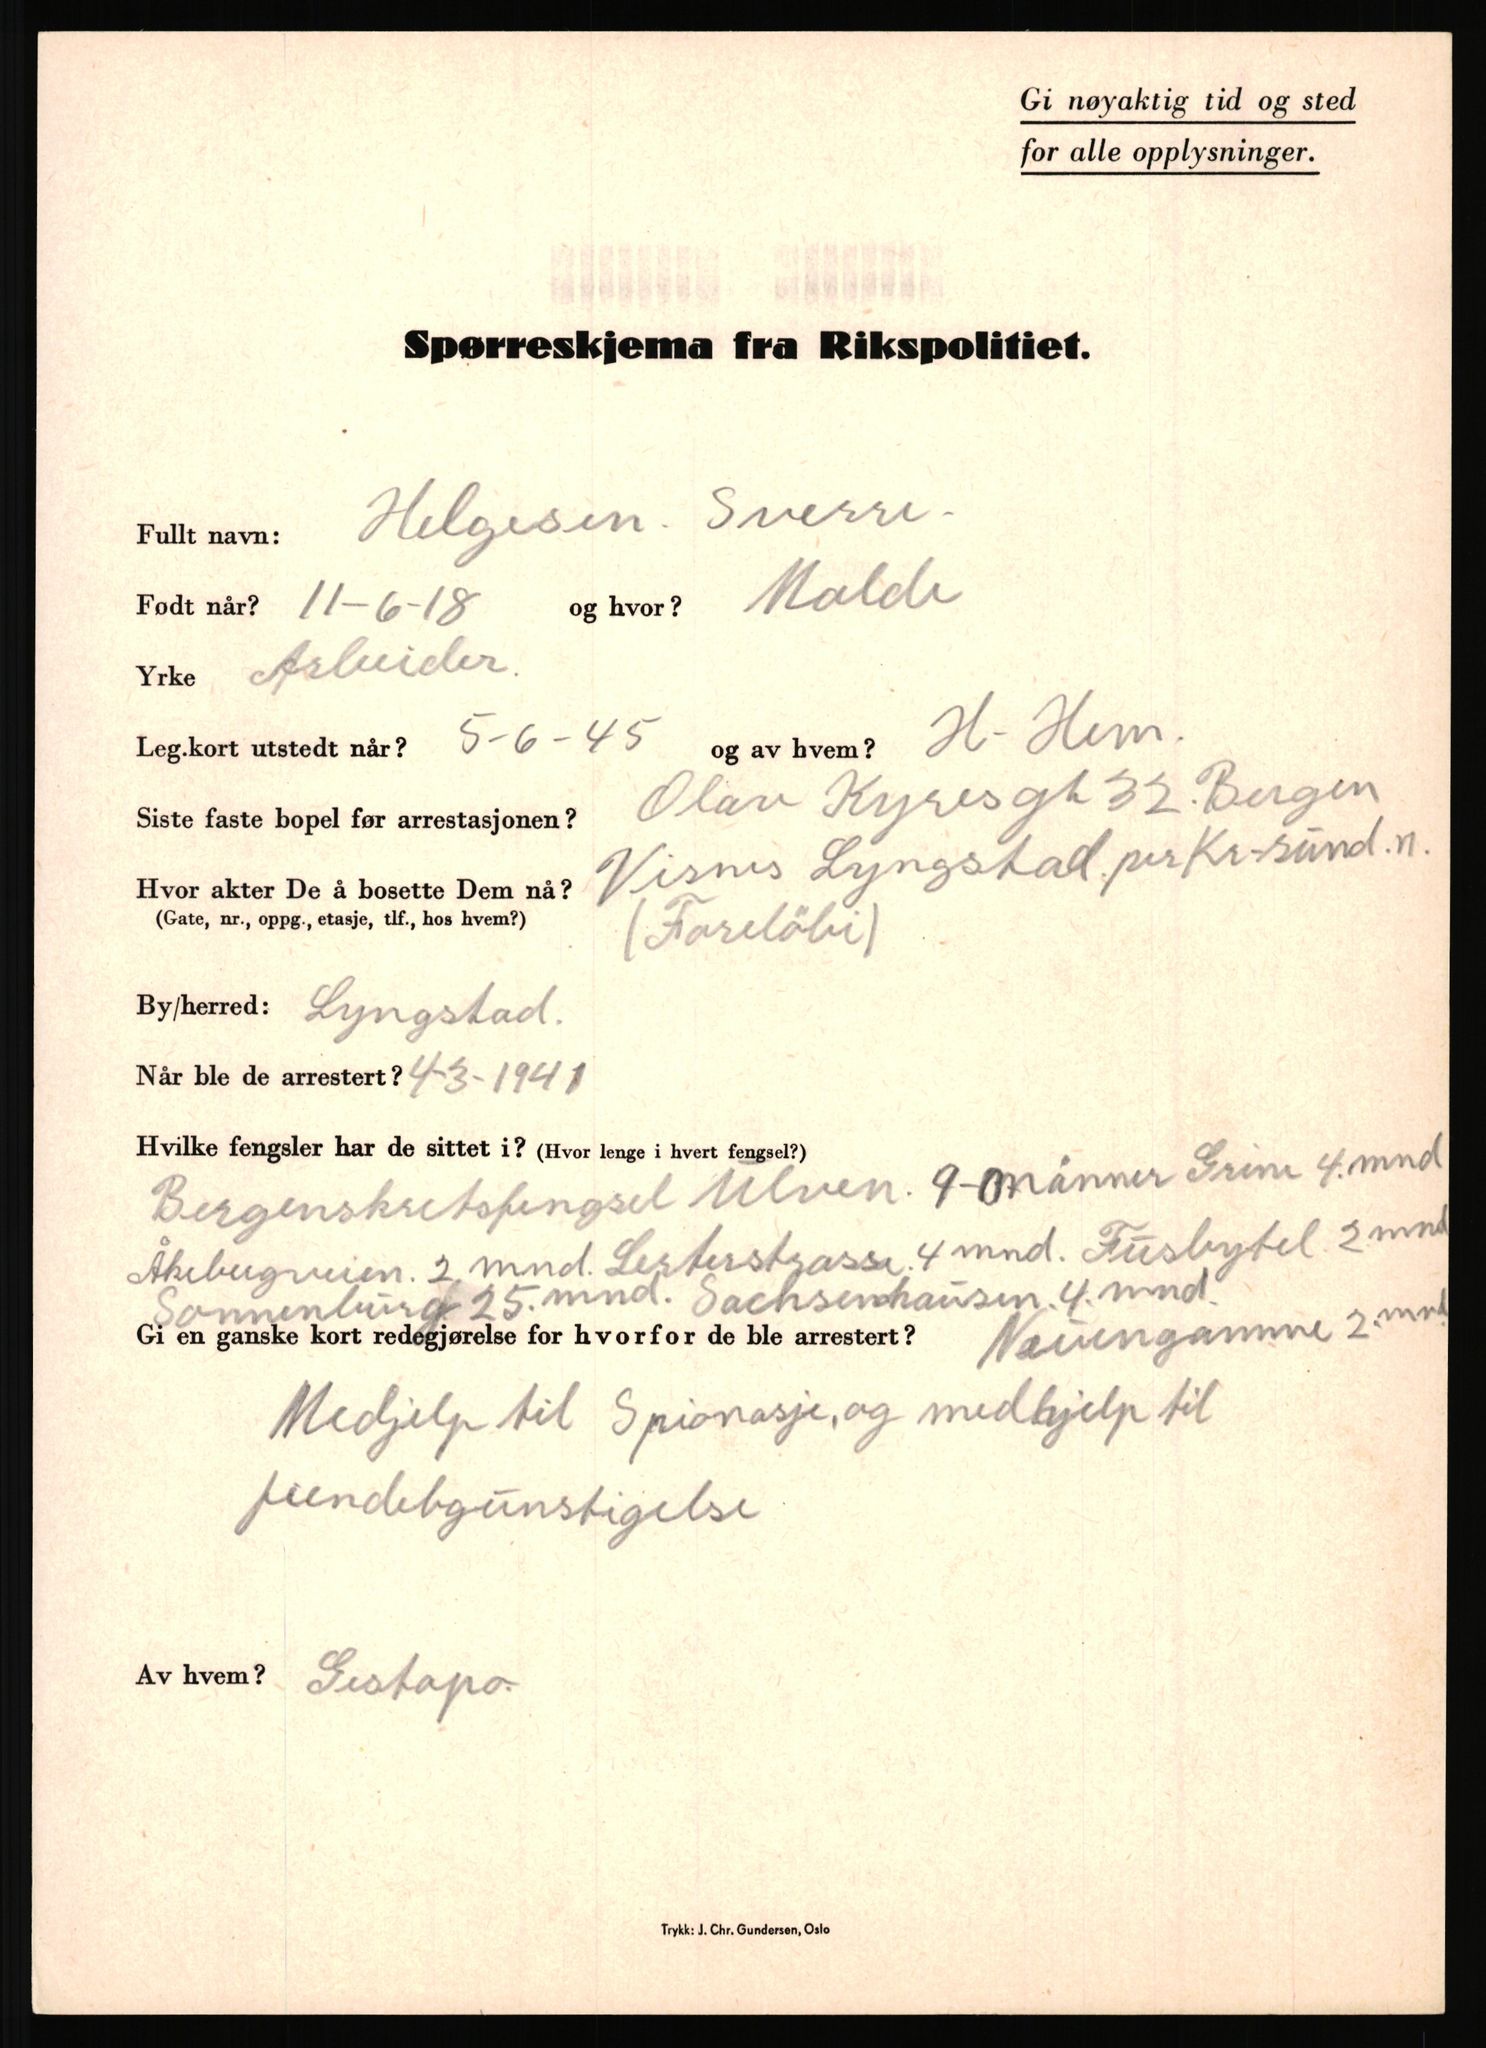 Gi nøyaktig tid og sted
for alle opplysninger.
Spørreskjema fra Rikspolitiet.
Fullt navn: Helgesen. Sverre.
Født når? 11-6-18 og hvor? Molde
Yrke Arbeider.
Leg.kort utstedt når? 5-6-45 og av hvem? H- Hem.
Siste faste bopel før arrestasjonen? Olav Kyresgt 32. Bergen
Hvor akter De å bosette Dem nå? Visnes Lyngstad. per Kr-sund.n.
(Gate, nr., oppg., etasje, tlf., hos hvem?) (Forelöbi)
By/herred: Lyngstad.
Når ble de arrestert? 4-3-1941
Hvilke fengsler har de sittet i? (Hvor lenge i hvert fengsel?)
Bergenskretsfengsel Ulven. 9 månner Grini 4. mnd
Åkebugveien. 2. mnd. Lesterstrasse. 4 mnd. Fusbytel 2 mnd
Sonnenburg 25. mnd. Sachsenhausen. 4. mnd.
Gi en ganske kort redegjørelse for hvorfor de ble arrestert? Neuengamme 2. mnd
Medjelp til Spionasje, og medhjelp til
fiendebgunstigelse
Av hvem? Gestapo.
Trykk: J. Chr. Gundersen, Oslo